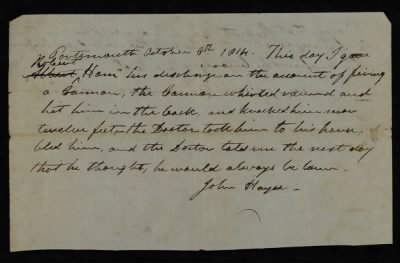 Portsmouth October 8th 1814. This day I gave
Robert
Albert, Ham his discharge on the account of firing
a Cannon, the Cannon whirled round and
hit him in the back, and knocked him near
twelve feet, the Doctor took him to his house,
bled him, and the Doctor told me the next day
that he thought, he would always be lame.
John Hayes